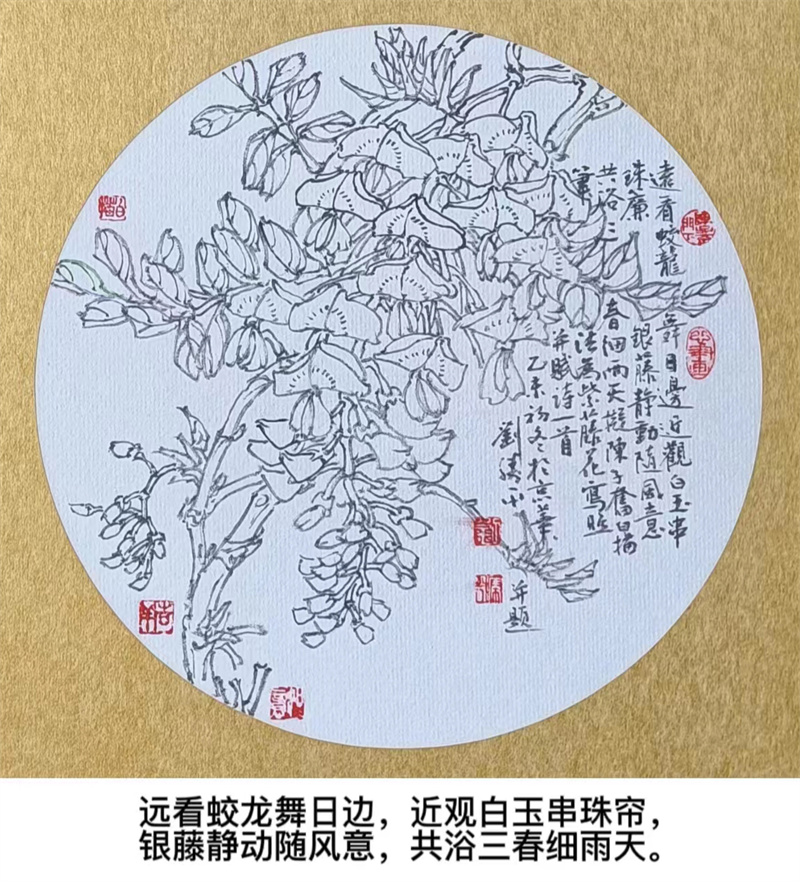 遠看蛟龍舞日邊近觀白玉串
珠簾銀藤静動隨風意
共浴三春細雨天擬陳子奮白描
筆法為紫藤花寫照
并賦詩一首
乙未初冬於京華
劉
并题
白描
远看蛟龙舞日边，近观白玉串珠帘，
银藤静动随风意，共浴三春细雨天。